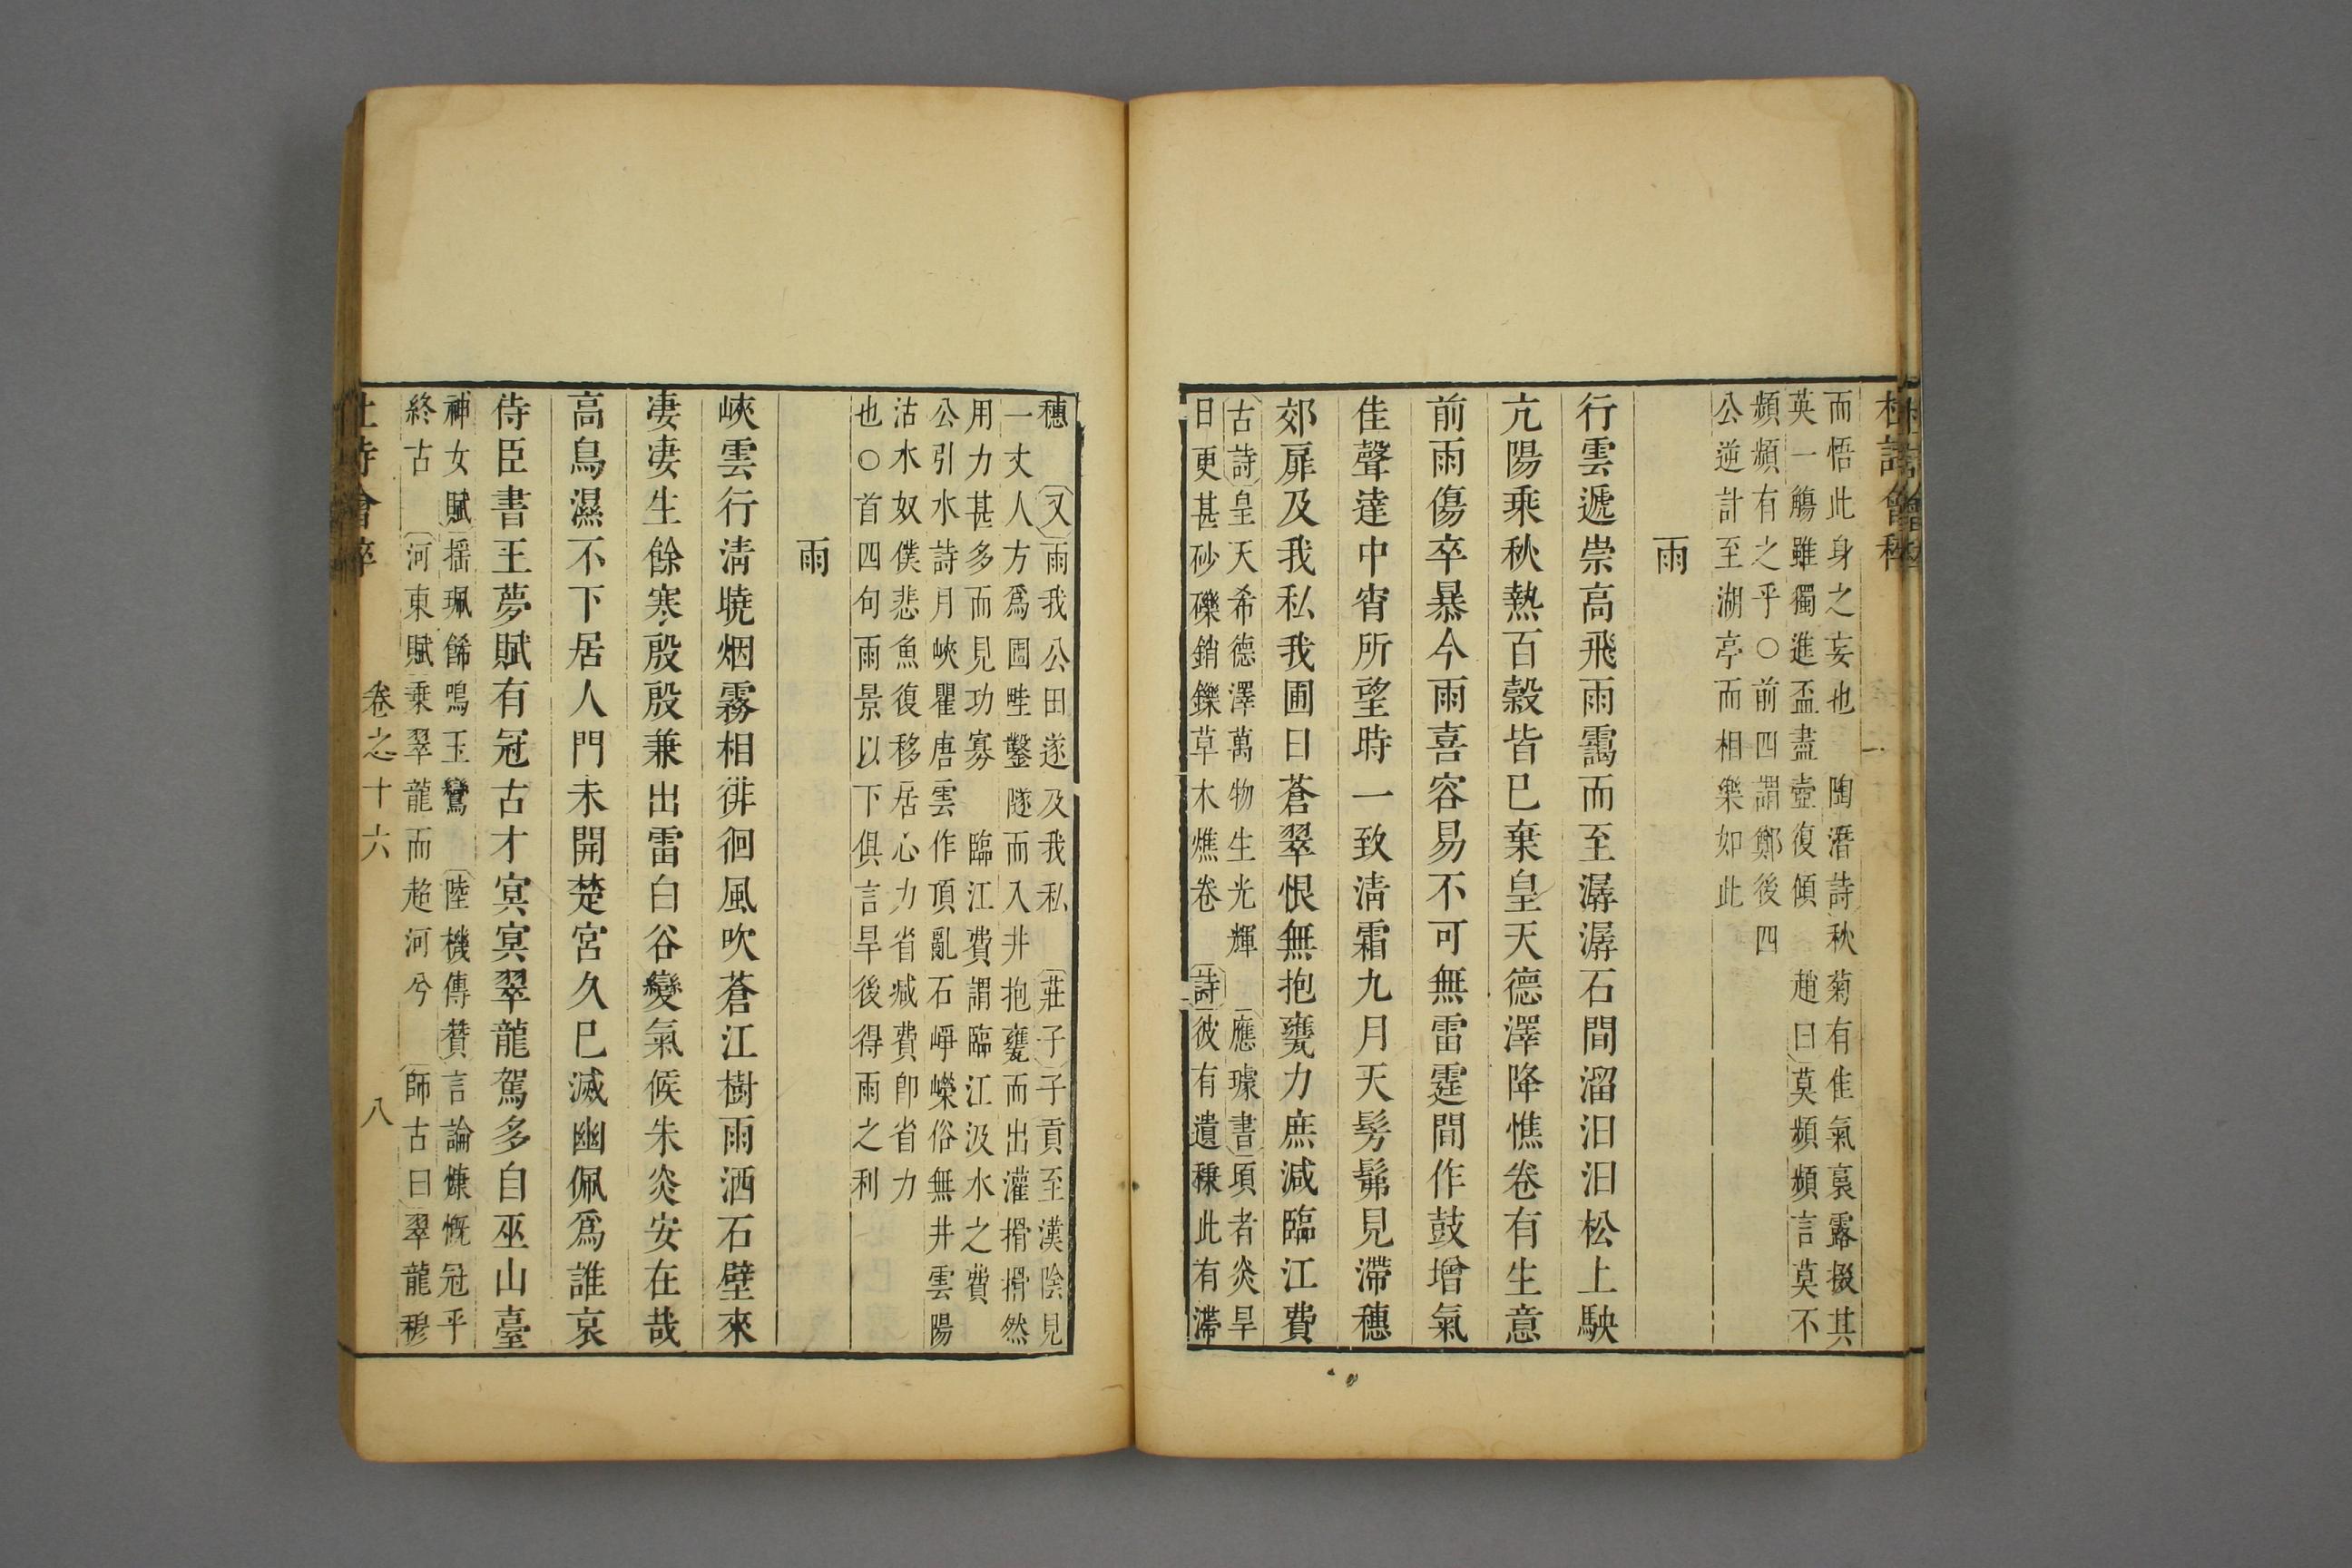 杜詩會稡
而悟此身之妄也 陶潛詩秋菊有佳氣裛露掇其
英一觴雖獨進盃盡壺復傾 趙曰莫頻頻言莫不
頻頻有之乎○前四謂鄭後四
公逆計至湖亭而相樂如此
雨
行雲遞崇高飛雨靄而至潺潺石間溜汩汩松上駛
亢陽乘秋熱百穀皆已棄皇天德澤降憔卷有生意
前雨傷卒暴今雨喜容易不可無雷霆間作鼓增氣
佳聲達中宵所望時一致淸霜九月天髣髴見滯穗
郊扉及我私我圃日蒼翠恨無抱甕力庶減臨江費
古詩皇天希德澤萬物生光輝 應璩書頃者炎旱
日更甚砂礫銷鑠草木燋卷 詩彼有遺秉此有滯
穗 又雨我公田遂及我私 莊子子貢至漢陰見
一丈人方爲圃畦鑿隧而入井抱甕而出灌搰搰然
用力甚多而見功寡 臨江費謂臨江汲水之費
公引水詩月峽瞿唐雲作頂亂石崢嶸俗無井雲陽
沽水奴僕悲魚復移居心力省減費卽省力
也○首四句雨景以下俱言旱後得雨之利
雨
峽雲行淸曉烟霧相徘徊風吹蒼江樹雨洒石壁來
凄凄生餘寒殷殷兼出雷白谷變氣候朱炎安在哉
高鳥濕不下居人門未開楚宮久已滅幽佩爲誰哀
侍臣書王夢賦有冠古才冥冥翠龍駕多自巫山臺
神女賦摇珮餙鳴玉鸞 陸機傳贊言論慷慨冠乎
終古 河東賦乗翠龍而超河兮 師古曰翠龍穆
杜詩會稡 卷之十六 八